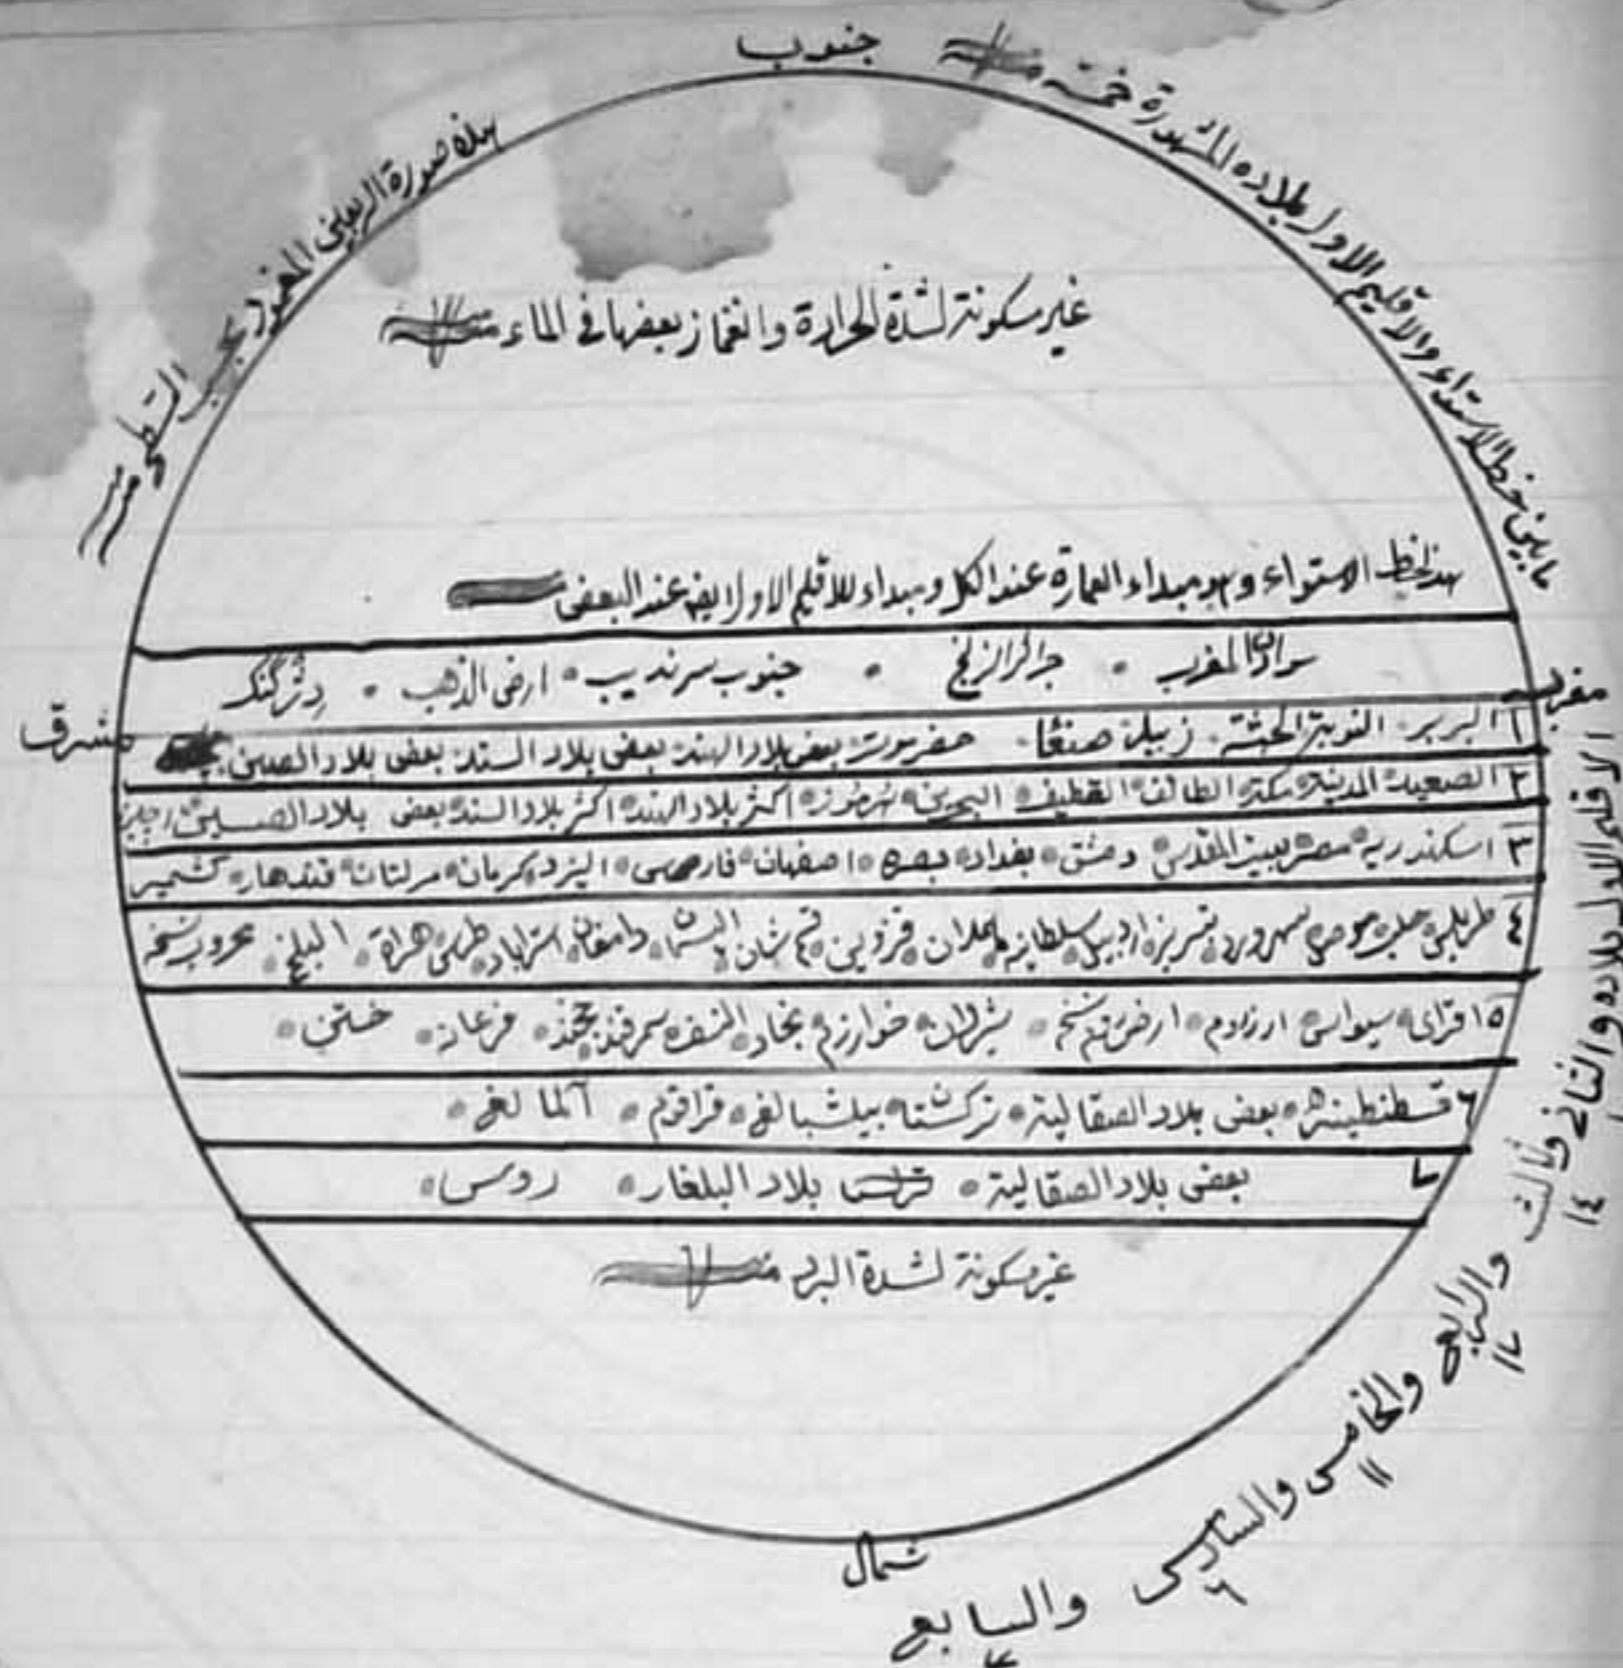 جنوب
هذه صورة الربعين المعمور بحسب التسطيح منه
ما بين خط الاستواء والاقليم الاول بلاده المشهورة خمسة منه
غير مسكونة لشدة الحرارة وانغماز بعضها في الماء منه
هذا خط الاستواء وهو مبداء العمارة عند الكل ومبداء للاقليم الاول ايضا عند البعض
سودان المغرب • جزائر الزنج • جنوب سرنديب • ارض الذهب • دژ گنگ
مغرب
مشرق
١ البربر • النوبة • الحبشة • زبيد • صنعا • حضرموت • بعض بلاد الهند • بعض بلاد السند • بعض بلاد الصين
٢ الصعيد • المدينة • مكة • الطائف • القطيف • البحرين • هرموز • اكثر بلاد الهند • اكثر بلاد السند • بعض بلاد الصين
٣ اسكندريه • مصر • بيت المقدس • دمشق • بغداد • بصره • اصفهان • فارس • اليزد • كرمان • مولتان • قندهار • كشمير
٤ طربلس • حلب • سهرورد • تبريز • اردبيل • سلطانيه • همدان • قزوين • قم • دامغان • استراباد • طوس • هراة • البلخ •
٥ اقراى • سيواس • ارزروم • شروان • خوارزم • بخارا • النسف • سمرقند • خجند • فرغانه • ختن •
٦ قسطنطينه • بعض بلاد الصقالية • تركستان • بيشبالغ • قراقرم • آلمالغ •
٧ بعض بلاد الصقالية • بلاد البلغار • روس •
غير مسكونة لشدة البرد منه
شمال
الاقليم الاول بلاده والثاني والثالث والرابع والخامس والسادس والسابع
١٤ ١٧ ١١ ٦